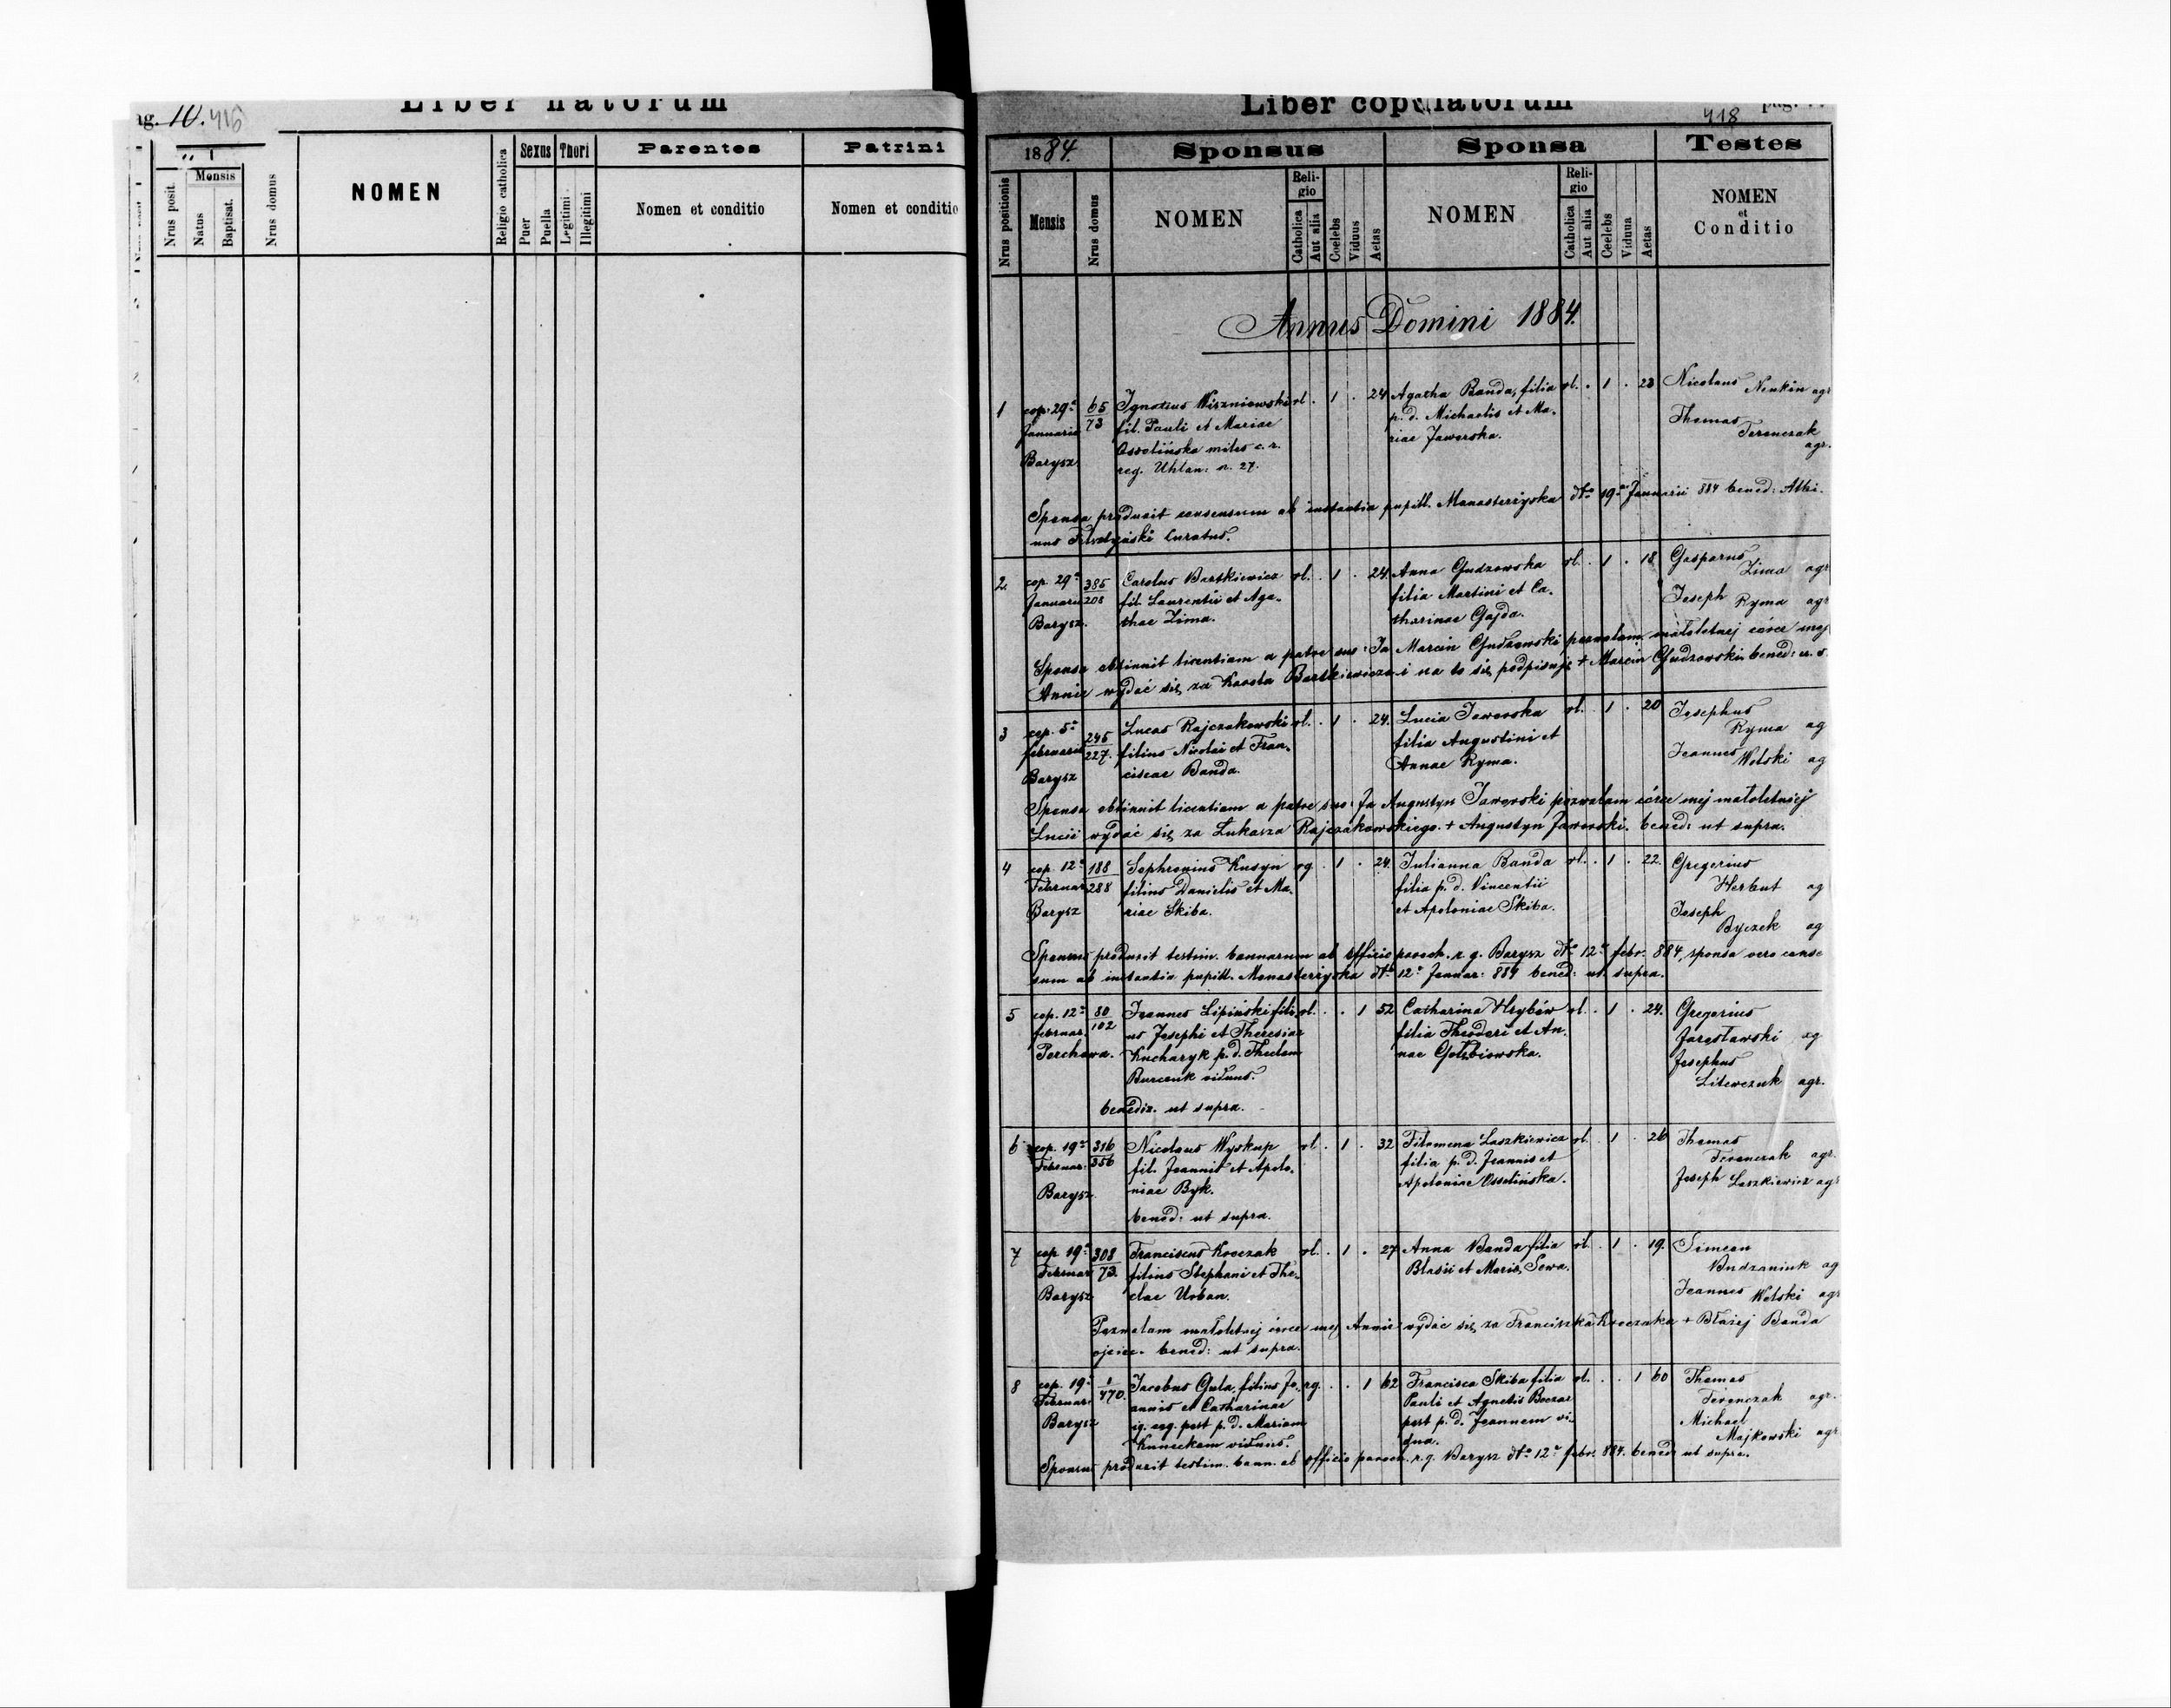 pag. 10. 416
Liber natorum
Nrus posit.
Mensis
Natus
Baptisat.
Nrus domus
NOMEN
Religio catholica
Sexus
Puer
Puella
Thori
Legitimi
Illegitimi
Parentes
Nomen et conditio
Patrini
Nomen et conditio
Liber copulatorum
418 pag.
1884.
Sponsus
Sponsa
Testes
Nrus positionis
Mensis
Nrus domus
NOMEN
Religio
Catholica
Aut alia
Coelebs
Viduus
Aetas
NOMEN
Religio
Catholica
Aut alia
Coelebs
Vidua
Aetas
NOMEN
et
Conditio
Annus Domini 1884.
1 cop. 29ª Januarii Barysz 65/73
Ignatius Wiszniowski rl. . 1 . 24
fil. Pauli et Mariae
Ossolińska miles c. r.
reg. Uhlan: n. 27.
Agatha Banda, filia rl. . 1 . 23
p. d. Michaelis et Ma-
riae Jaworska.
Nicolaus agr
Thomas
Ferenczak
agr.
Sponsa produxit consensum ab instantia pupill. Monasterzyska dto 19ª Januarii 884 bened: Albi-
nus curatus.
2. cop. 29ª Januarii Barysz. 385/208
Carolus Bartkiewicz rl. . 1 . 24.
fil. Laurentii et Aga-
thae Zima.
Anna Gudzowska rl. . 1 . 18
filia Martini et Ca-
tharinae Gajda.
Gasparus
Zima agr
Joseph Ryma agr
Sponsa obtinuit licentiam a patre suo: Ja Marcin Gudzowski pozwalam małoletniej córce mej
Annie wydać się za Karola Bartkiewicza i na to się podpisuję + Marcin Gudzowski. bened: u. s.
3 cop. 5ª februarii Barysz 245/227.
Lucas Rajczakowski rl. . 1 . 24.
filius Nicolai et Fran-
ciscae Banda.
Lucia Jaworska rl. . 1 . 20
filia Augustini et
Annae Ryma.
Josephus
Ryma ag
Joannes
Wolski ag
Sponsa obtinuit licentiam a patre suo: Ja Augustyn Jaworski pozwalam córce mej małoletniej
Łucii wydać się za Łukasza Rajczakowskiego. + Augustyn Jaworski. bened: ut supra.
4 cop. 12ª Februar. Barysz 188/288
Sophronius Kusyn rg . 1 . 24.
filius Danielis et Ma-
riae Skiba.
Julianna Banda rl. . 1 . 22.
filia p. d. Vincentii
et Apoloniae Skiba.
Gregorius
Herbut ag
Joseph
Byczek ag
Sponsus produxit testim. bannorum ab officio paroch. r. g. Barysz dto 12ª febr. 884, sponsa vero conse
sum ab instantia pupill. Monasterzyska dto 12ª Januar: 884 bened: ut supra.
5 cop. 12ª februar. Porchowa. 80/102
Joannes Lipiński fili- rl. . . 1 52
us Josephi et Theresiae
Kucharyk p. d. Theclam
viduus.
benedix. ut supra.
Catharina Hrybów rl. . 1 . 24.
filia Theodori et An-
nae Gołębiowska.
Gregorius
Jarosławski ag
Josephus
Litewczuk agr.
6 cop. 19ª Februar. Barysz 316/356
Nicolaus Wyskup rl. . 1 . 32
fil. Joannis et Apolo-
niae Byk.
bened: ut supra.
Filomena Laszkiewicz rl. . 1 . 26
filia p. d. Joannis et
Apoloniae Ossolińska.
Thomas
Ferenczak agr.
Joseph Laszkiewicz agr
7 cop. 19ª Februar. Barysz 308/73.
Franciscus Kroczak rl. . 1 . 27
filius Stephani et The-
clae Urban.
Anna Banda filia rl. . 1 . 19.
Blasii et Maria Sowa.
Simeon
Budzaniuk ag
Joannes Wolski agr
Pozwalam małoletniej córce mej Annie wydać się za Franciszka Kroczaka + Błażej Banda
ojciec. bened: ut supra.
8 cop. 19ª Februar. Barysz 1/470.
Jacobus Gula, filius Jo- rg. . . 1 62
annis et Catharinae
post p. d. Mariam
viduus.
Francisca Skiba filia rl. . . 1 60
Pauli et Agnetis
post p. d. Joannem vi-
dua.
Thomas
Ferenczak agr.
Michael
Majkowski agr
Sponsus produxit testim. bann. ab officio paroch. r. g. Barysz dto 12ª febr. 884. bened ut supra.